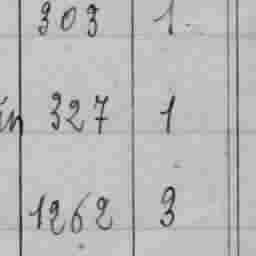 303 1
in 327 1
1262 3